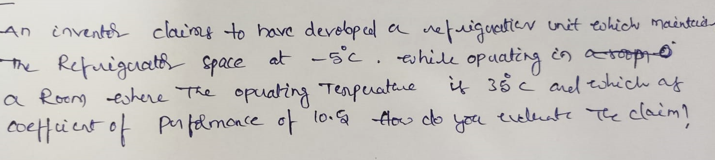 An inventor claims to have developed a refrigeration unit which maintais
The Refriguator space at -5°C. while opuating in
a Room where The opuating Tempuature is 35°C and which as
coefficient of purformance of 10.5 How do you evaluate The claim?